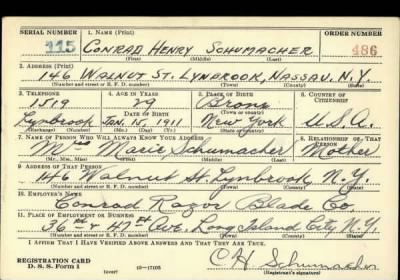 SERIAL NUMBER 1. NAME (Print) ORDER NUMBER
115 CONRAD HENRY SCHUMACHER 486
(First) (Middle) (Last)
2. ADDRESS (Print)
146 WALNUT ST. LYNBROOK, NASSAU. N.Y.
(Number and street or R. F. D. number) (Town) (County) (State)
3. TELEPHONE 4. AGE IN YEARS 5. PLACE OF BIRTH 6. COUNTRY OF CITIZENSHIP
1519 29 Bronx
DATE OF BIRTH (Town or county)
Lynbrook JAN. 15, 1911 New York U.S.A.
(Exchange) (Number) (Mo.) (Day) (Yr.) (State or country)
7. NAME OF PERSON WHO WILL ALWAYS KNOW YOUR ADDRESS 8. RELATIONSHIP OF THAT PERSON
Mrs Marie Schumacher Mother
(Mr., Mrs., Miss) (First) (Middle) (Last)
9. ADDRESS OF THAT PERSON
146 Walnut St. Lynbrook N.Y.
(Number and street or R. F. D. number) (Town) (County) (State)
10. EMPLOYER'S NAME
Conrad Razor Blade Co
11. PLACE OF EMPLOYMENT OR BUSINESS
36 St & 47th Ave. Long Island City N.Y.
(Number and street or R. F. D. number) (Town) (County) (State)
I AFFIRM THAT I HAVE VERIFIED ABOVE ANSWERS AND THAT THEY ARE TRUE.
REGISTRATION CARD C H Schumacher
D. S. S. Form 1 (over) 16—17105 (Registrant's signature)